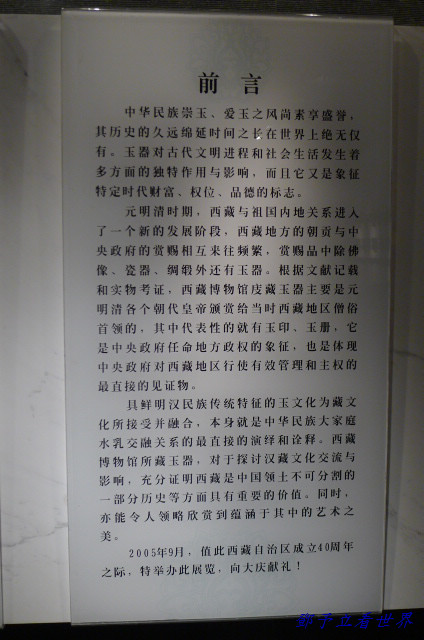 前言
中华民族崇玉、爱玉之风尚素享盛誉，
其历史的久远绵延时间之长在世界上绝无仅
有。玉器对古代文明进程和社会生活发生着
多方面的独特作用与影响，而且它又是象征
特定时代财富、权位、品德的标志。
元明清时期，西藏与祖国内地关系进入
了一个新的发展阶段，西藏地方的朝贡与中
央政府的赏赐相互来往频繁，赏赐品中除佛
像、瓷器、绸缎外还有玉器。根据文献记载
和实物考证，西藏博物馆庋藏玉器主要是元
明清各个朝代皇帝颁赏给当时西藏地区僧俗
首领的，其中代表性的就有玉印、玉册，它
是中央政府任命地方政权的象征，也是体现
中央政府对西藏地区行使有效管理和主权的
最直接的见证物。
具鲜明汉民族传统特征的玉文化为藏文
化所接受并融合，本身就是中华民族大家庭
水乳交融关系的最直接的演绎和诠释。西藏
博物馆所藏玉器，对于探讨汉藏文化交流与
影响，充分证明西藏是中国领土不可分割的
一部分历史等方面具有重要的价值。同时，
亦能令人领略欣赏到蕴涵于其中的艺术之
美。
2005年9月，值此西藏自治区成立40周年
之际，特举办此展览，向大庆献礼！